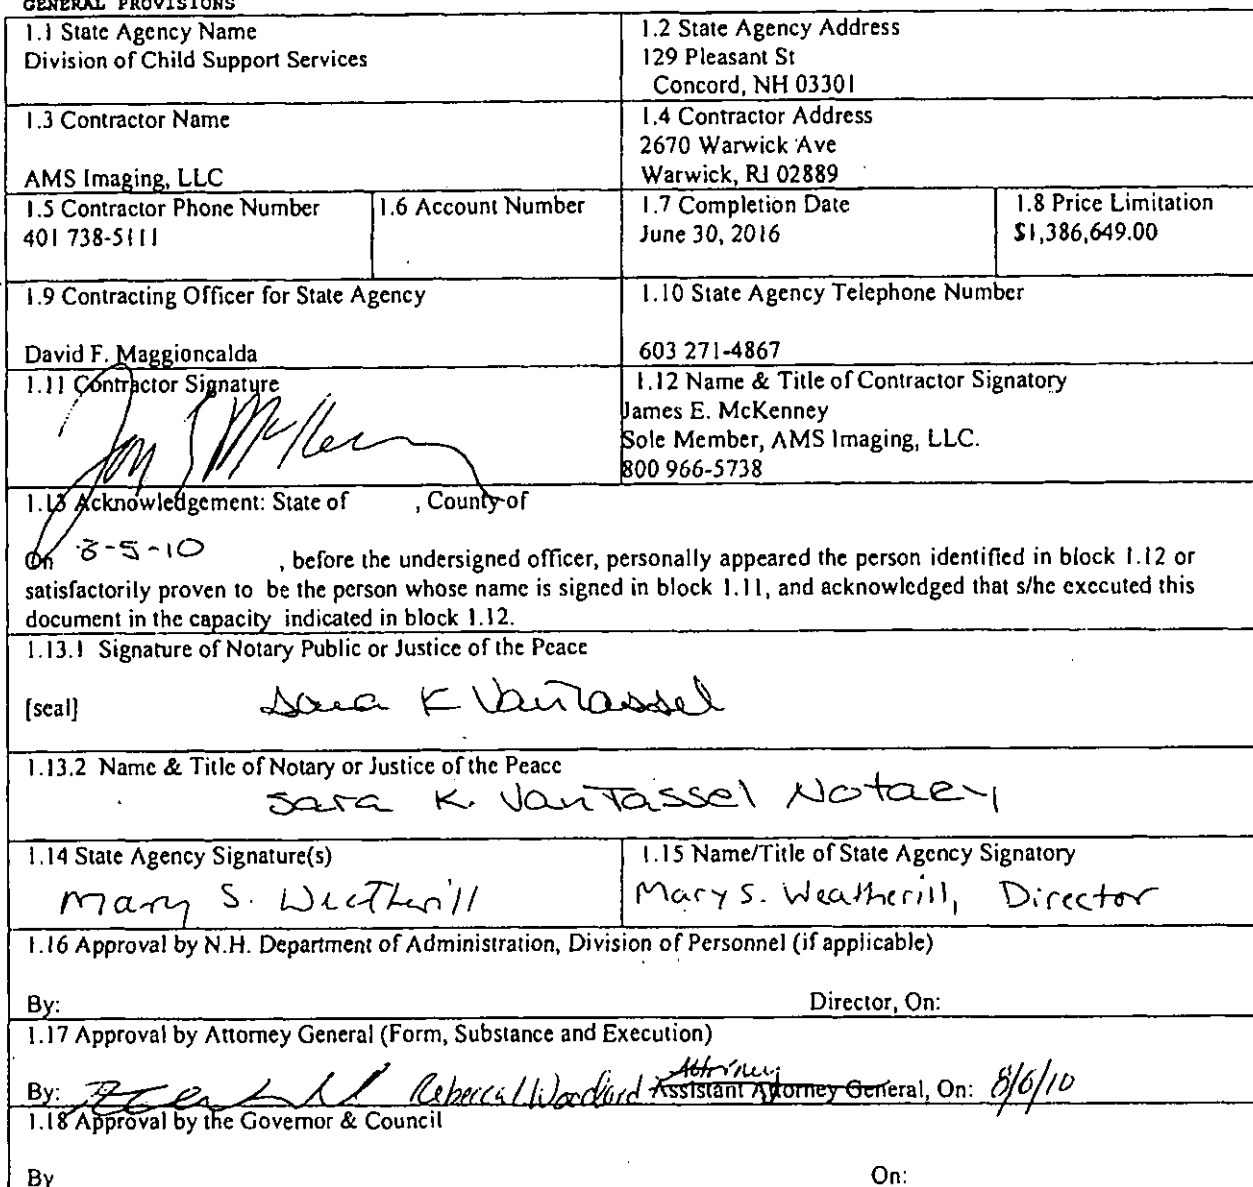 GENERAL PROVISIONS
1.1 State Agency Name
Division of Child Support Services
1.2 State Agency Address
129 Pleasant St
Concord, NH 03301
1.3 Contractor Name
AMS Imaging, LLC
1.4 Contractor Address
2670 Warwick Ave
Warwick, RI 02889
1.5 Contractor Phone Number
401 738-5111
1.6 Account Number
1.7 Completion Date
June 30, 2016
1.8 Price Limitation
$1,386,649.00
1.9 Contracting Officer for State Agency
David F. Maggioncalda
1.10 State Agency Telephone Number
603 271-4867
1.11 Contractor Signature
1.12 Name & Title of Contractor Signatory
James E. McKenney
Sole Member, AMS Imaging, LLC.
800 966-5738
1.13 Acknowledgement: State of , County of
On 8-5-10 , before the undersigned officer, personally appeared the person identified in block 1.12 or
satisfactorily proven to be the person whose name is signed in block 1.11, and acknowledged that s/he executed this
document in the capacity indicated in block 1.12.
1.13.1 Signature of Notary Public or Justice of the Peace
[seal] Sara K VanTassel
1.13.2 Name & Title of Notary or Justice of the Peace
Sara K. VanTassel Notary
1.14 State Agency Signature(s)
Mary S. Weatherill
1.15 Name/Title of State Agency Signatory
Mary S. Weatherill, Director
1.16 Approval by N.H. Department of Administration, Division of Personnel (if applicable)
By: Director, On:
1.17 Approval by Attorney General (Form, Substance and Execution)
Attorney
By: Rebecca L Woodard Assistant Attorney General, On: 8/6/10
1.18 Approval by the Governor & Council
By On: